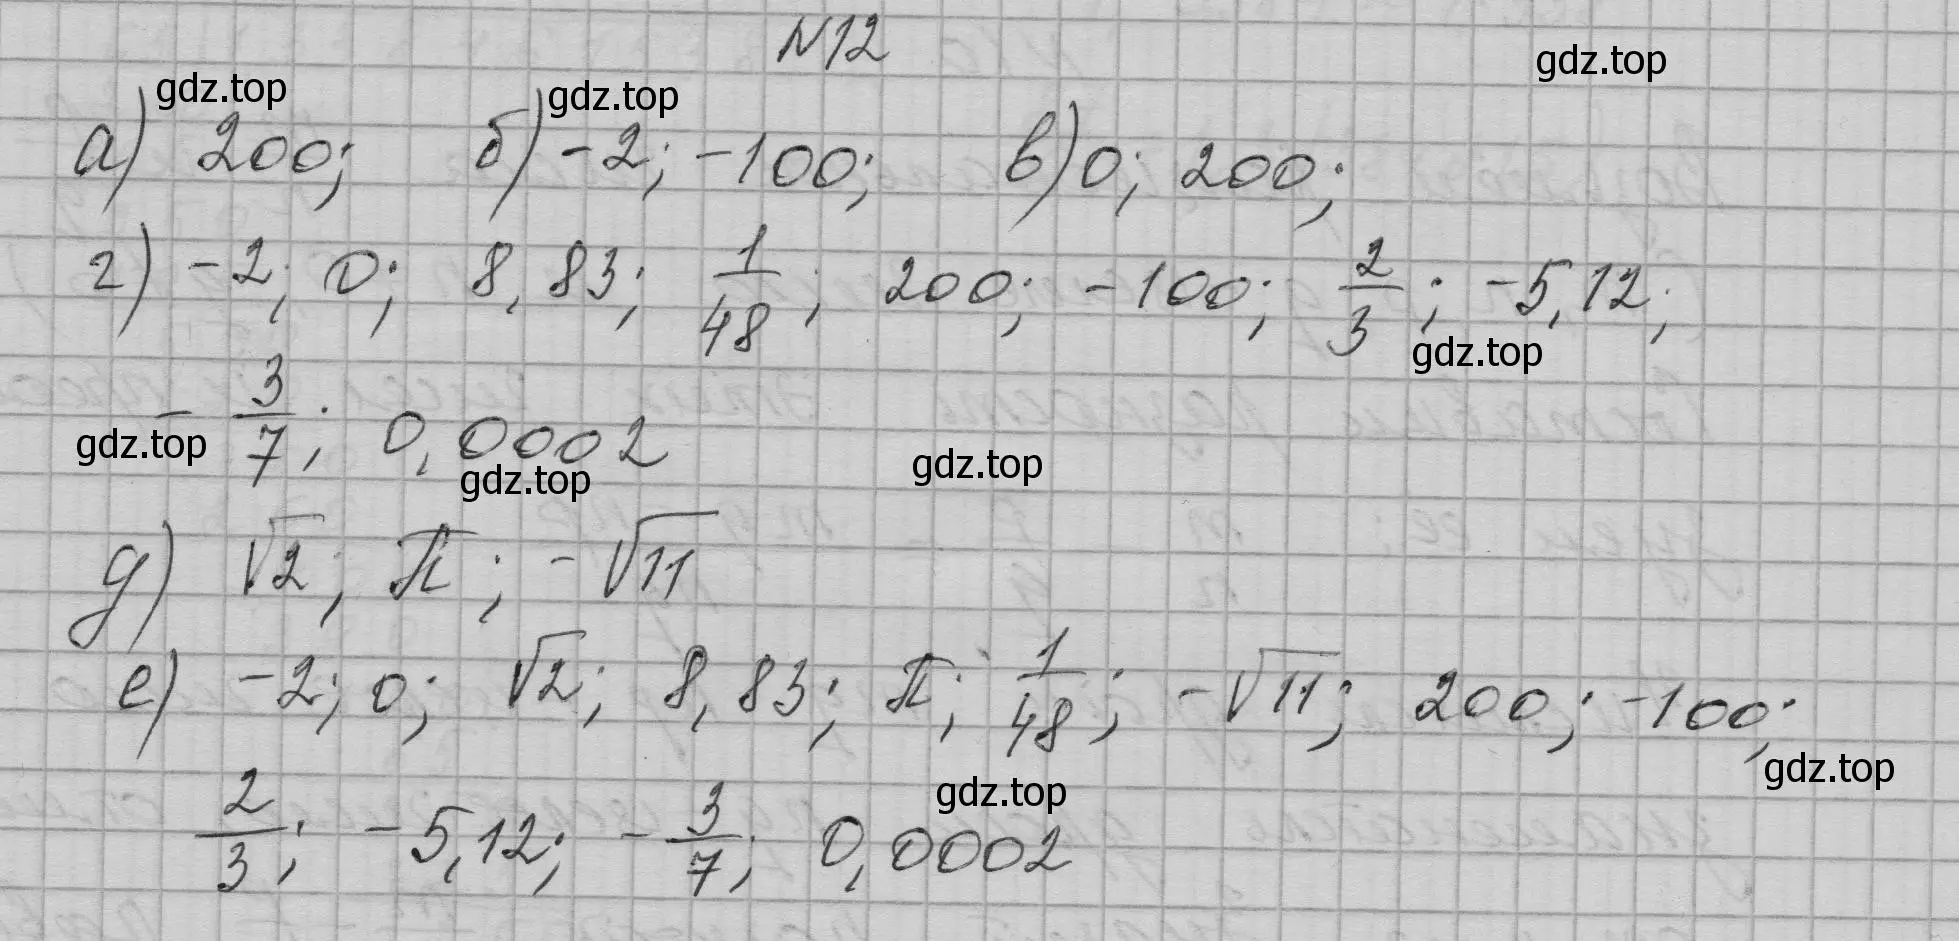 N12
gdz.top gdz.top gdz.top
а) 200; б) -2; -100; в) 0; 200;
г) -2; 0; 8,83; 1/48; 200; -100; 2/3; -5,12;
gdz.top
- 3/7; 0,0002
gdz.top gdz.top gdz.top
д) √2; π; -√11
е) -2; 0; √2; 8,83; π; 1/48; -√11; 200; -100;
gdz.top gdz.top
2/3; -5,12; -3/7; 0,0002